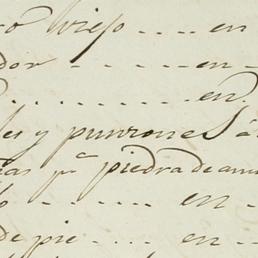 viejo .... en
dor - - . . . . . en -
. . . . . . . . . . en
les y punzones
pª piedra de amo
- . . . . . en
de pie - - . . . en -